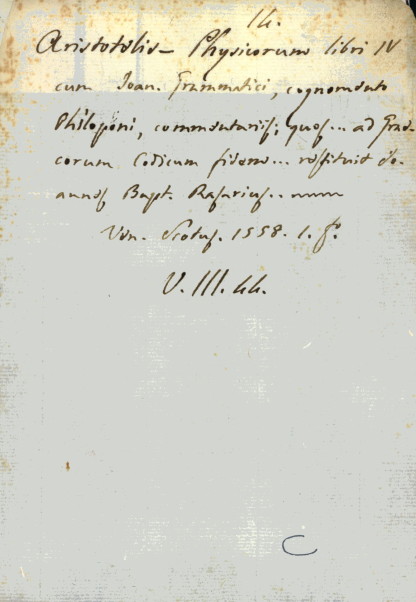 14.
Aristotelis Physicorum libri IV
cum Joan. Grammatici, cognomento
Philoponi, commentariis; quos... ad Grae-
corum Codicum fidem... restituit Jo-
annes Bapt. Rasarius..
Ven. Scotus. 1558. 1. f°.
V. III. 44.
C